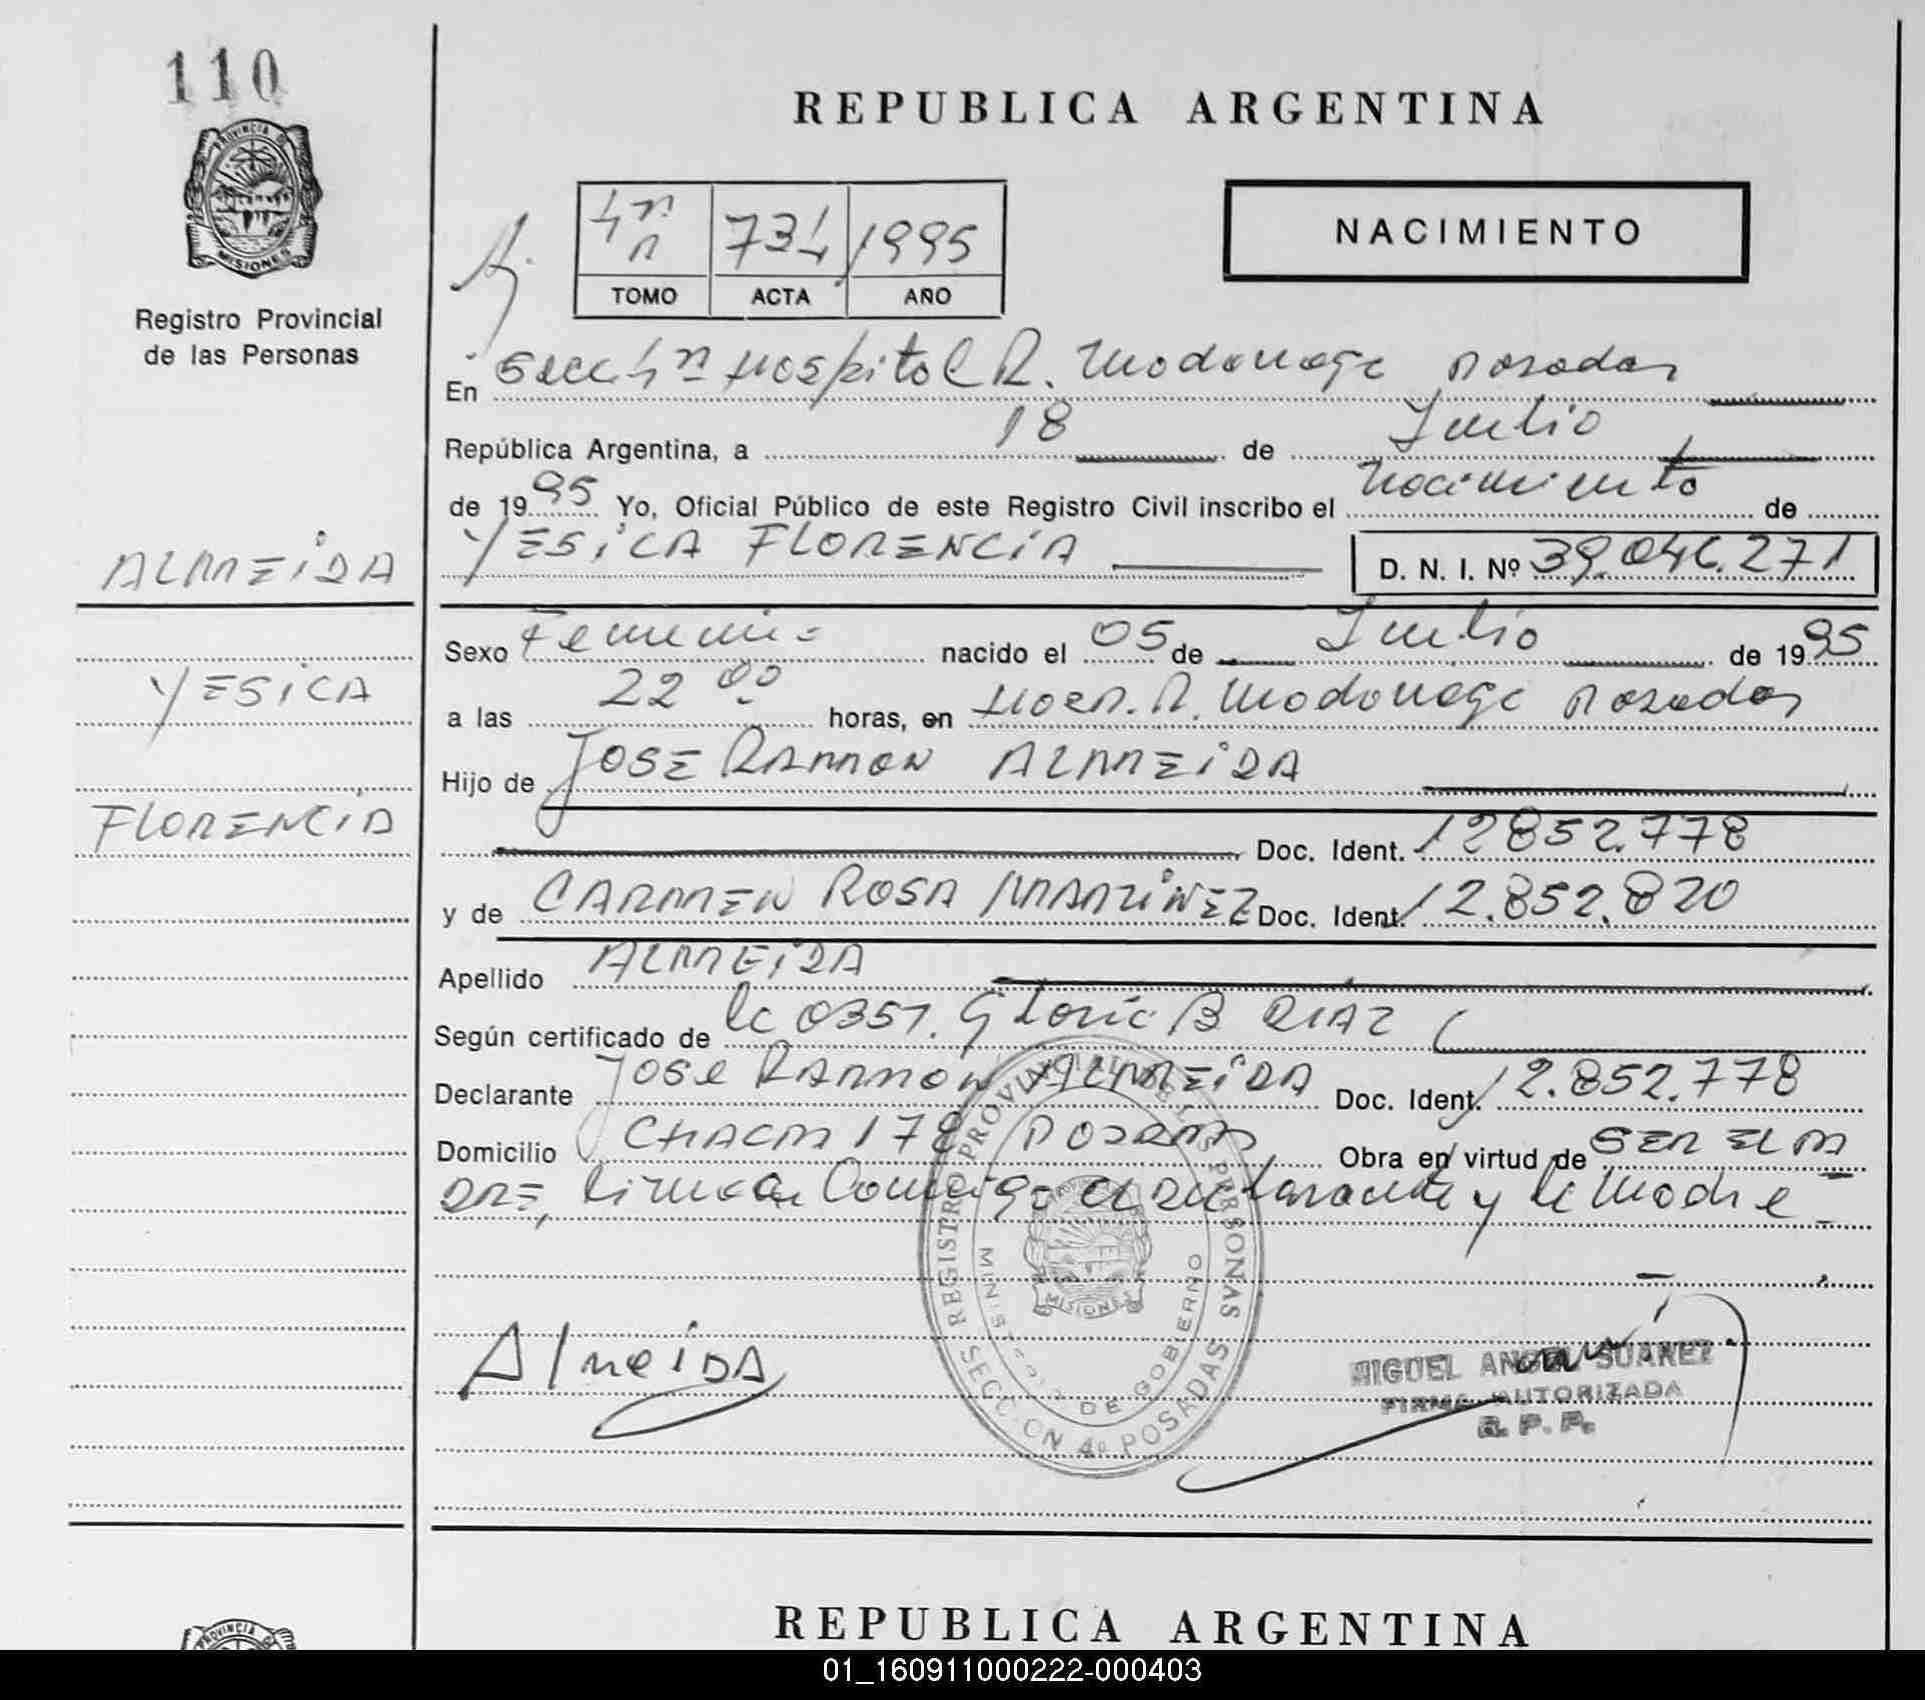 110
PROVINCIA DE
MISIONES
Registro Provincial
de las Personas
REPUBLICA ARGENTINA
NACIMIENTO
734 1995
TOMO ACTA AÑO
En Secc. 4ª Hospital R. Madariaga Posadas
República Argentina, a 18 de Julio
de 1995 Yo, Oficial Público de este Registro Civil inscribo el Nacimiento de
YESICA FLORENCIA D. N. I. Nº 39.046.271
ALMEIDA
YESICA
FLORENCIA
Sexo Femenino nacido el 05 de Julio de 1995
a las 22 00 horas, en Hosp. R. Madariaga Posadas
Hijo de JOSE RAMON ALMEIDA
Doc. Ident. 12852.778
y de CARMEN ROSA MARTINEZ Doc. Ident. 12.852.820
Apellido ALMEIDA
Según certificado de la 0357. Gloria B DIAZ
Declarante JOSE RAMON ALMEIDA Doc. Ident. 12.852.778
Domicilio CHACRA 178 POSADAS Obra en virtud de SER EL PA
DRE, firman Conmigo el Declarante y la Madre
REGISTRO PROVINCIAL DE LAS PERSONAS
MINISTERIO DE GOBIERNO
MISIONES
SECCION 4ª POSADAS
Almeida
MIGUEL ANGEL SUAREZ
FIRMA AUTORIZADA
R. P. P.
PROVINCIA DE
REPUBLICA ARGENTINA
01_160911000222-000403